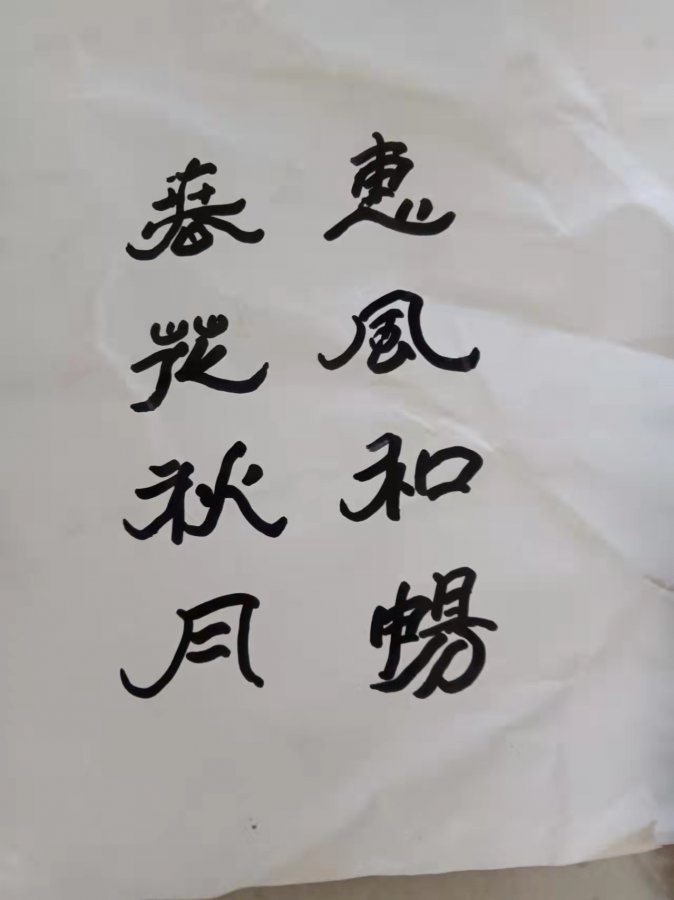 惠風和暢
春花秋月